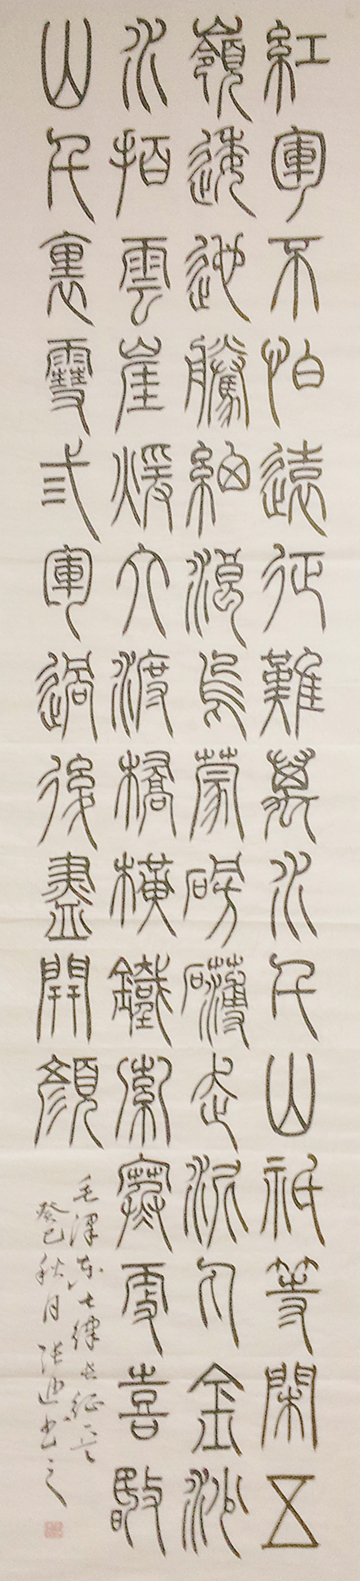 紅軍不怕遠征難萬水千山祇等閑五
嶺逶迤騰細浪烏蒙磅礴走泥丸金沙
水拍雲崖煖大渡橋橫鐵索寒更喜
山千裏雪弎軍過後盡開顏
毛澤東七律長征一首
癸巳秋月迪書之